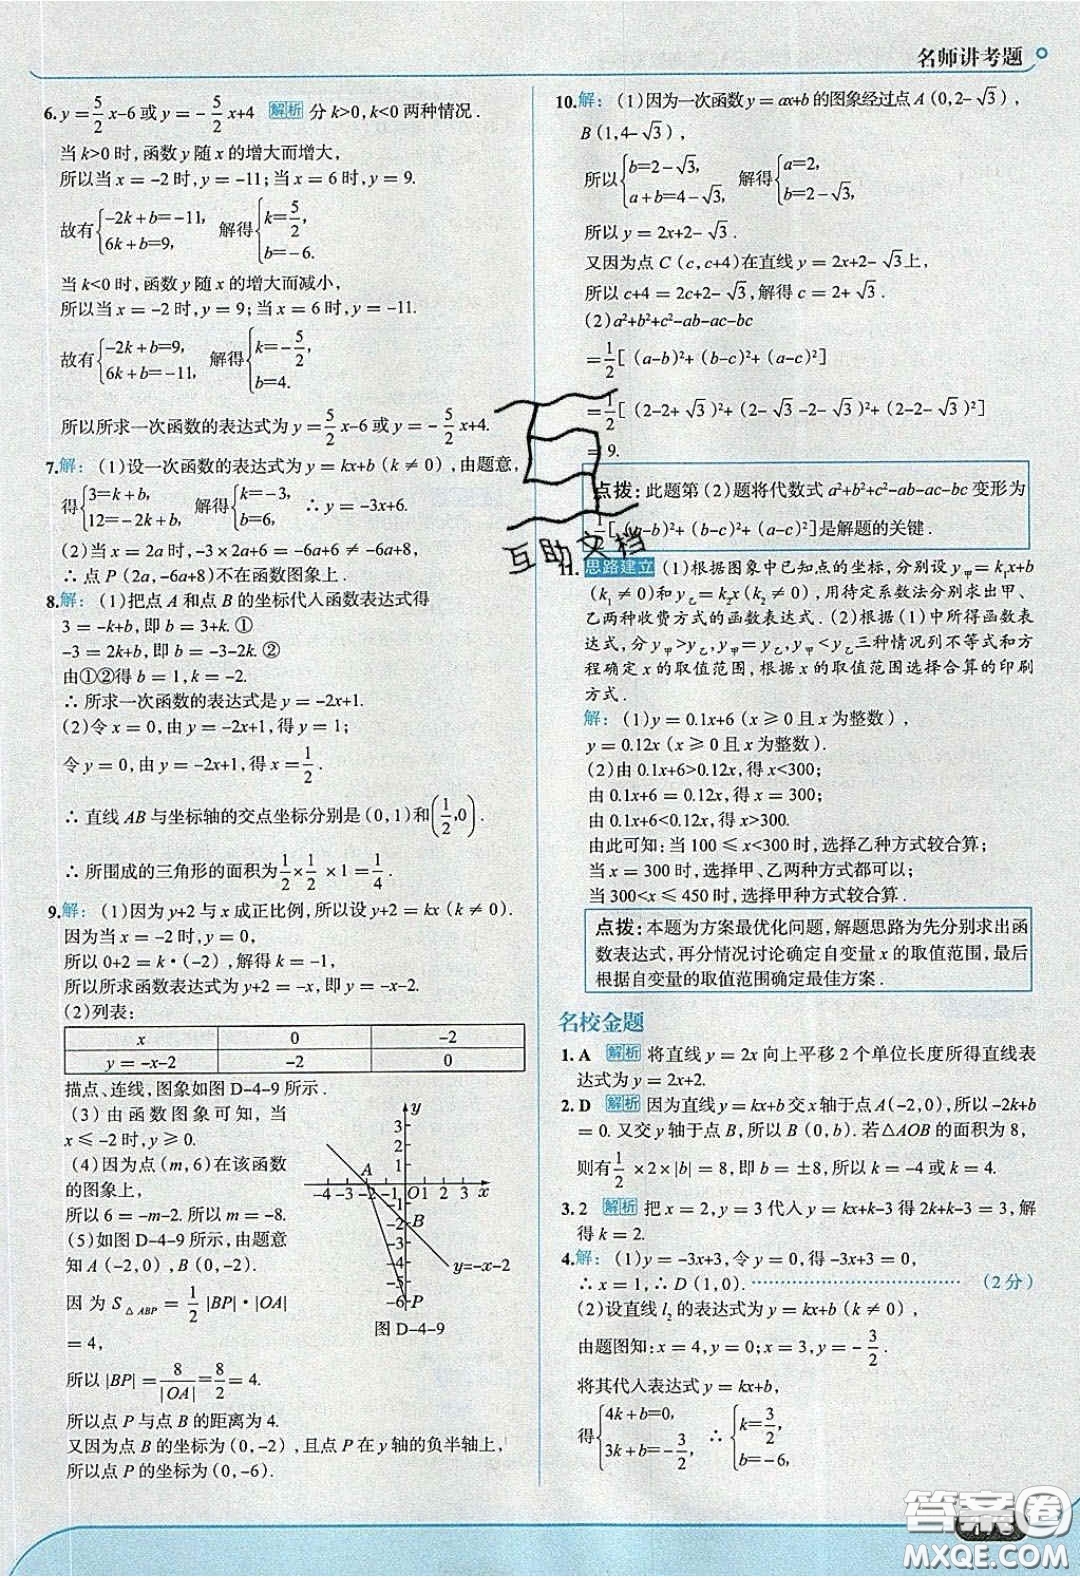 名师讲考题
6. y=5/2x-6 或 y=-5/2x+4 解析 分 k>0,k<0 两种情况.
当 k>0 时,函数 y 随 x 的增大而增大,
所以当 x=-2 时,y=-11;当 x=6 时,y=9.
故有{-2k+b=-11, 6k+b=9, 解得{k=5/2, b=-6.
当 k<0 时,函数 y 随 x 的增大而减小,
所以当 x=-2 时,y=9;当 x=6 时,y=-11.
故有{-2k+b=9, 6k+b=-11, 解得{k=-5/2, b=4.
所以所求一次函数的表达式为 y=5/2x-6 或 y=-5/2x+4.
7.解:(1)设一次函数的表达式为 y=kx+b(k≠0),由题意,
得{3=k+b, 12=-2k+b, 解得{k=-3, b=6, ∴y=-3x+6.
(2)当 x=2a 时,-3×2a+6=-6a+6≠-6a+8,
∴点 P(2a,-6a+8)不在函数图象上.
8.解:(1)把点 A 和点 B 的坐标代入函数表达式得
3=-k+b,即 b=3+k.①
-3=2k+b,即 b=-3-2k.②
由①②得 b=1,k=-2.
∴所求一次函数的表达式是 y=-2x+1.
(2)令 x=0,由 y=-2x+1,得 y=1;
令 y=0,由 y=-2x+1,得 x=1/2.
∴直线 AB 与坐标轴的交点坐标分别是(0,1)和(1/2,0).
∴所围成的三角形的面积为1/2×1/2×1=1/4.
9.解:(1)因为 y+2 与 x 成正比例,所以设 y+2=kx(k≠0).
因为当 x=-2 时,y=0,
所以 0+2=k·(-2),解得 k=-1,
所以所求函数表达式为 y+2=-x,即 y=-x-2.
(2)列表:
x 0 -2
y=-x-2 -2 0
描点、连线,图象如图 D-4-9 所示.
(3)由函数图象可知,当
x≤-2 时,y≥0.
(4)因为点(m,6)在该函数
的图象上,
所以 6=-m-2.所以 m=-8.
(5)如图 D-4-9 所示,由题意
知 A(-2,0),B(0,-2).
因为 S△ABP=1/2|BP|·|OA|
=4,
所以|BP|=8/|OA|=8/2=4.
所以点 P 与点 B 的距离为 4.
又因为点 B 的坐标为(0,-2),且点 P 在 y 轴的负半轴上,
所以点 P 的坐标为(0,-6).
y
3
2
1
A
-4 -3 -2 -1 O 1 2 3 x
-1
-2 B
-3
-4
-5
-6 P
y=-x-2
图 D-4-9
10.解:(1)因为一次函数 y=ax+b 的图象经过点 A(0,2-√3),
B(1,4-√3),
所以{b=2-√3, a+b=4-√3, 解得{a=2, b=2-√3,
所以 y=2x+2-√3.
又因为点 C(c,c+4)在直线 y=2x+2-√3上,
所以 c+4=2c+2-√3,解得 c=2+√3.
(2)a²+b²+c²-ab-ac-bc
=1/2[(a-b)²+(b-c)²+(a-c)²]
=1/2[(2-2+√3)²+(2-√3-2-√3)²+(2-2-√3)²]
=9.
点拨:此题第(2)题将代数式 a²+b²+c²-ab-ac-bc 变形为
1/2[(a-b)²+(b-c)²+(a-c)²]是解题的关键.
互助文档
11.思路建立 (1)根据图象中已知点的坐标,分别设 y甲=k₁x+b
(k₁≠0)和 y乙=k₂x(k₂≠0),用待定系数法分别求出甲、
乙两种收费方式的函数表达式.(2)根据(1)中所得函数表
达式,分 y甲>y乙,y甲=y乙,y甲<y乙三种情况列不等式和方
程确定 x 的取值范围,根据 x 的取值范围选择合算的印刷
方式.
解:(1)y=0.1x+6(x≥0 且 x 为整数),
y=0.12x(x≥0 且 x 为整数).
(2)由 0.1x+6>0.12x,得 x<300;
由 0.1x+6=0.12x,得 x=300;
由 0.1x+6<0.12x,得 x>300.
由此可知:当 100≤x<300 时,选择乙种方式较合算;
当 x=300 时,选择甲、乙两种方式都可以;
当 300<x≤450 时,选择甲种方式较合算.
点拨:本题为方案最优化问题,解题思路为先分别求出函
数表达式,再分情况讨论确定自变量 x 的取值范围,最后
根据自变量的取值范围确定最佳方案.
名校金题
1. A 解析 将直线 y=2x 向上平移 2 个单位长度所得直线表
达式为 y=2x+2.
2. D 解析 因为直线 y=kx+b 交 x 轴于点 A(-2,0),所以-2k+b
=0.又交 y 轴于点 B,所以 B(0,b).若△AOB 的面积为 8,
则有1/2×2×|b|=8,即 b=±8,所以 k=-4 或 k=4.
3. 2 解析 把 x=2,y=3 代入 y=kx+k-3 得 2k+k-3=3,解
得 k=2.
4.解:(1)y=-3x+3,令 y=0,得-3x+3=0,
∴x=1,∴D(1,0). ……………………(2分)
(2)设直线 l₂ 的表达式为 y=kx+b(k≠0),
由题图知:x=4,y=0;x=3,y=-3/2.
将其代入表达式 y=kx+b,
得{4k+b=0, 3k+b=-3/2, ∴{k=3/2, b=-6,
答案圈
MXQE.COM